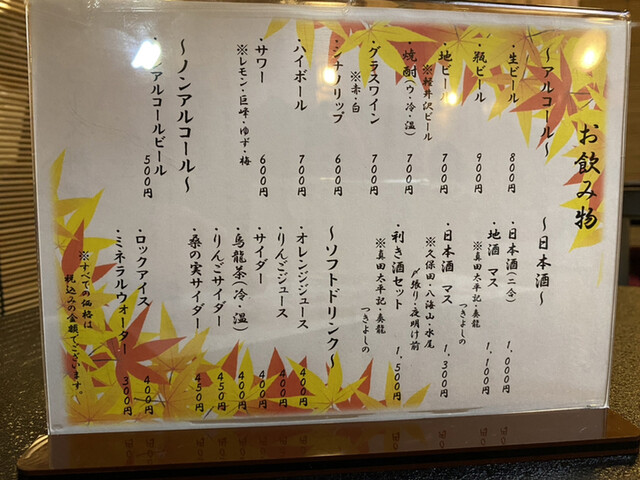 お飲み物
～アルコール～
・生ビール 800円
・瓶ビール 900円
・地ビール 700円
※軽井沢ビール
・焼酎(ウ・冷・温) 700円
・グラスワイン 700円
※赤・白
・シナノリップ 600円
・ハイボール 700円
・サワー 600円
※レモン・巨峰・ゆず・梅
～ノンアルコール～
ンアルコールビール 500円
～日本酒～
・日本酒(二合) 1,000円
・地酒 マス 1,100円
※真田太平記・奏龍
つきよしの
・日本酒 マス 1,300円
※久保田・八海山・水尾
〆張り・夜明け前
・利き酒セット 1,500円
※真田太平記・奏龍
つきよしの
～ソフトドリンク～
・オレンジジュース 400円
・りんごジュース 400円
・サイダー 450円
・烏龍茶(冷・温) 400円
・りんごサイダー 450円
・桑の実サイダー 450円
・ロックアイス 400円
・ミネラルウォーター 300円
※すべての価格は
税込みの金額でございます。